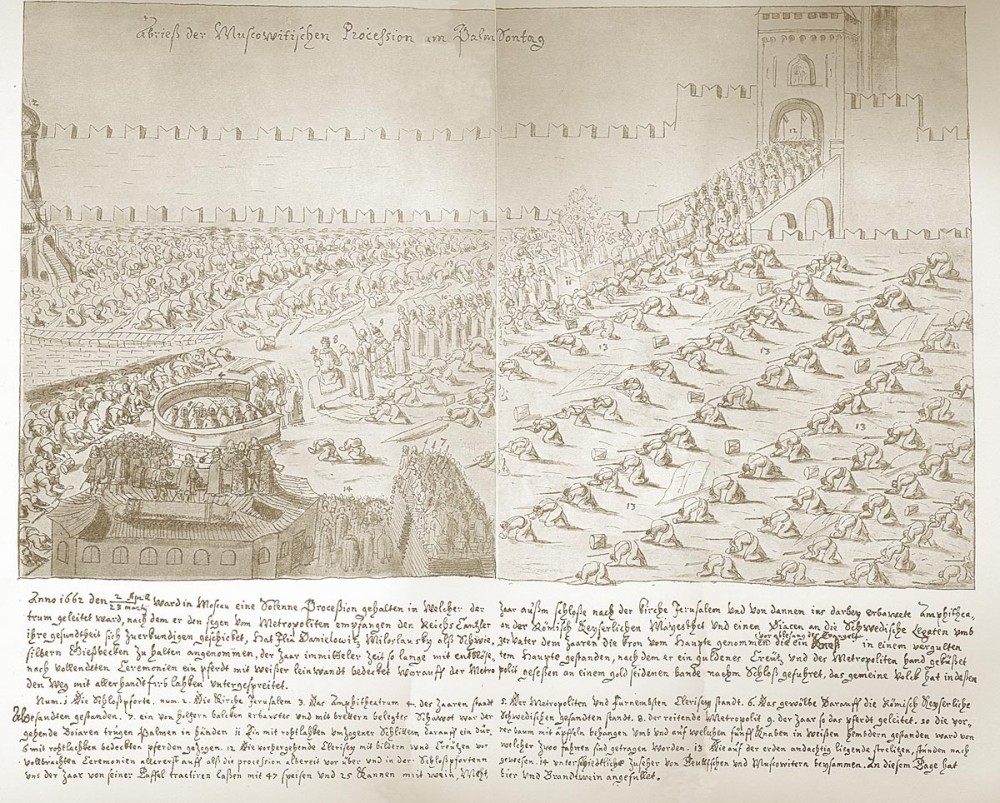 Abrieß der Muscowitischen Procession am Palm Sontag
2
8
9
11
13
13
13
13
3
14
Anno 1662 den 2 April 23 marty ward in Moscau eine Solenne Proceßion gehalten in Welcher der Zaar außm schloße nach der kirche Jerusalem und von dannen ins darbey erbawete Amphithea,
trum geleitet ward, nach dem er den segen vom Metropoliten empfangen den Reichs Cantzler an der Römisch Keyserlichen Mayesthet und einen Diacen an die Schwedische Legaten umb
ihre gesundtheit sich zuerkundigen geschicket, hat Ilia Danielowitz Miloslausky als Schwie, ger Vater dem Zaaren die kron vom Haupte genommen die ein in einem vergulten
silbern Gießbecken zu halten angenommen, der Zaar immitteler Zeit so lange mit entblöß, tem Haupte gestanden, nach dem er ein guldener Creütz und des Metropoliten hand geküßet
nach vollendeten Ceremonien ein pferdt mit weißer leinwandt bedecket worauff der Metro polit geseßen an einem gold seidenen bande nachm Schloß gefuhret, das gemeine Volck hat indeßen
den Weg mit allerhandt farb lahken untergespreitet.
Num. 1 Die Schloßpforte, num. 2. Die Kirche Jerusalem 3. Das Amphitheatrum 4. der Zaaren standt 5. Der Metropoliten und furnembsten Clerisey standt. 6. Das gewölbe Darauff die Römisch Keyserliche
Gesandten gestanden. 7. ein von holtzern balcken erbawter und mit brettern belegter Schawot war der Schwedischen gesandten standt. 8. der reitende Metropolit 9. der Zaar so das pferd geleitet. 10 die vor,
gehende Boiaren trugen Palmen in händen 11 Ein mit roht lahken umzogener Schlitten darauff ein dür, rer baum mit äpffeln behangen und auf welchen fünff Knaben in Weißen hembdern gestanden ward von
6 mit roht lahken bedeckten pferden gezogen. 12 Die vorhergehende Clerisey mit bildern und Creützen vor welcher zwo fahnen sind getragen worden. 13 Die auf der erden andachtig liegende strelitzen, stunden nach
vollbrachten Ceremonien allererst auff als die procession albereit vor über und in der Schloßpforten gewesen. 14 unterschiedtliche zuseher von Deutschen und Muscowitern beysammen. An diesem Tage hat
uns der Zaar von seiner Taffel tractiren laßen mit 47 speisen und 25 Kannen mit wein, Meht, bier und Brandtwein angefullet.